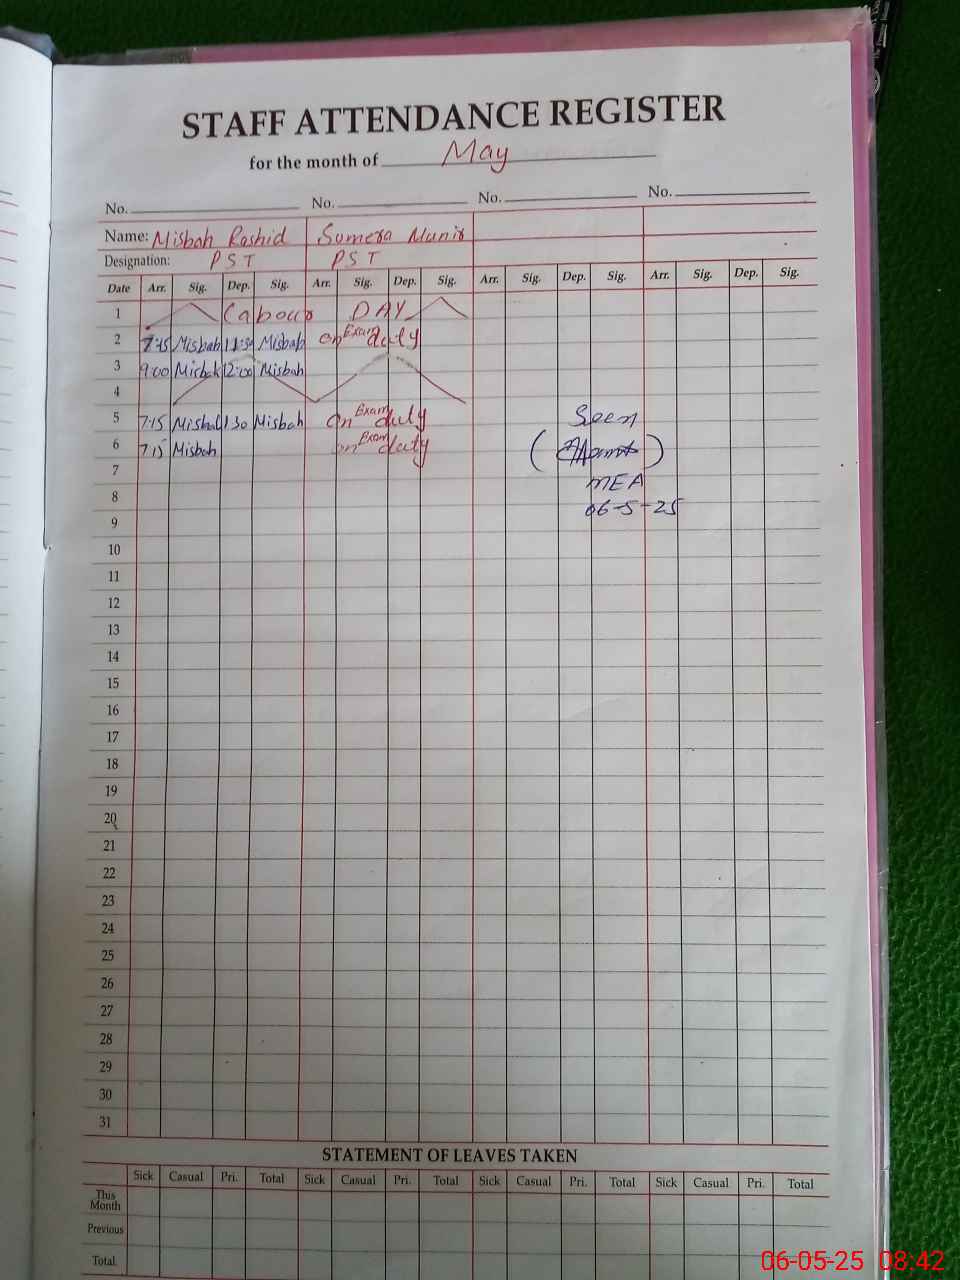 STAFF ATTENDANCE REGISTER
for the month of May
No. No. No. No.
Name: Misbah Rashid Sumera Munir
Designation: PST PST
Date Arr. Sig. Dep. Sig. Arr. Sig. Dep. Sig. Arr. Sig. Dep. Sig. Arr. Sig. Dep. Sig.
1 DAY
2 7:45 Misbah 11:30 Misbah on Exam duty
3 9:00 Misbah 12:00 Misbah
4
5 7:15 Misbah 1:30 Misbah on Exam duty Seen
6 7:15 Misbah on Exam duty
7 MEA
8 06-5-25
9
10
11
12
13
14
15
16
17
18
19
20
21
22
23
24
25
26
27
28
29
30
31
STATEMENT OF LEAVES TAKEN
Sick Casual Pri. Total Sick Casual Pri. Total Sick Casual Pri. Total Sick Casual Pri. Total
This
Month
Previous
Total
06-05-25 08:42